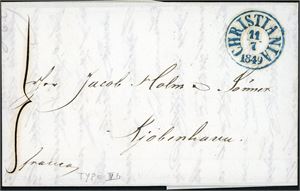 CHRISTIANIA
11
7
1849
Hrr Jacob Holm & Sønner
Kjøbenhavn.
franco,
TYPE